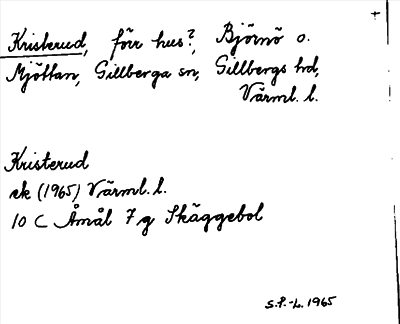 Kristerud, förr hus?, Björnö o.
Mjöttan, Gillberga sn, Gillbergs hd,
Värml. l.
Kristerud
ek (1965) Värml. l.
10 C Åmål 7 g Skäggebol
S.P.-L. 1965